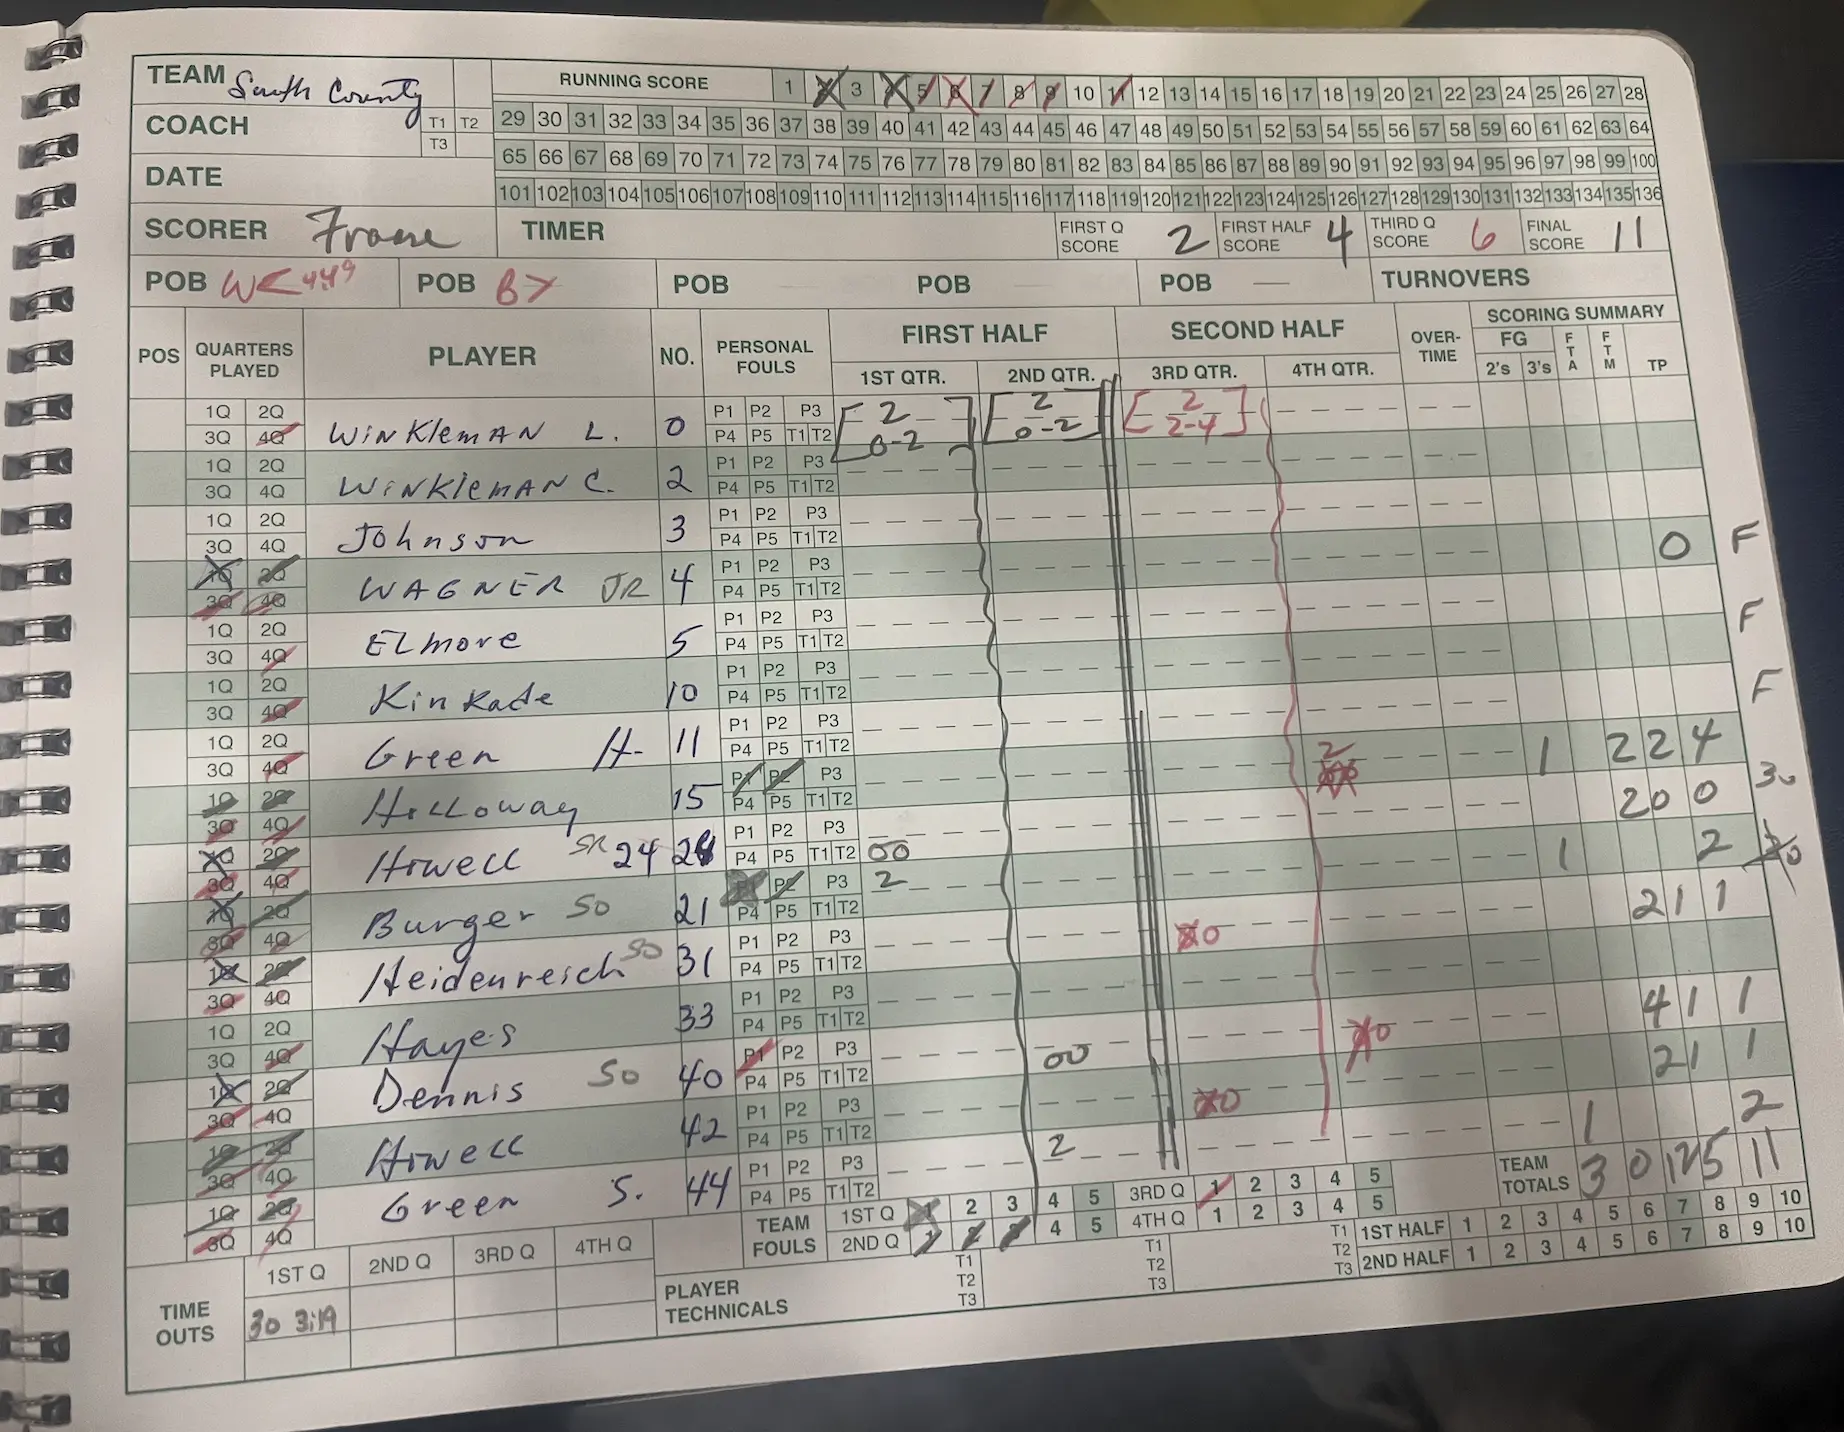 TEAM South County
RUNNING SCORE 1 2 3 4 5 6 7 8 9 10 11 12 13 14 15 16 17 18 19 20 21 22 23 24 25 26 27 28
COACH T1 T2 T3
29 30 31 32 33 34 35 36 37 38 39 40 41 42 43 44 45 46 47 48 49 50 51 52 53 54 55 56 57 58 59 60 61 62 63 64
DATE
65 66 67 68 69 70 71 72 73 74 75 76 77 78 79 80 81 82 83 84 85 86 87 88 89 90 91 92 93 94 95 96 97 98 99 100
101 102 103 104 105 106 107 108 109 110 111 112 113 114 115 116 117 118 119 120 121 122 123 124 125 126 127 128 129 130 131 132 133 134 135 136
SCORER TIMER FIRST Q SCORE 2 FIRST HALF SCORE 4 THIRD Q SCORE 6 FINAL SCORE 11
POB W< 4:49 POB B> POB POB POB TURNOVERS
POS QUARTERS PLAYED PLAYER NO. PERSONAL FOULS FIRST HALF SECOND HALF OVER-TIME SCORING SUMMARY
1ST QTR. 2ND QTR. 3RD QTR. 4TH QTR. FG 2's 3's FTA FTM TP
1Q 2Q P1 P2 P3 2 2 2
3Q 4Q WINKLEMAN L. 0 P4 P5 T1 T2 0-2 0-2 2-4
1Q 2Q P1 P2 P3
3Q 4Q WINKLEMAN C. 2 P4 P5 T1 T2
1Q 2Q P1 P2 P3
3Q 4Q Johnson 3 P4 P5 T1 T2
1Q 2Q P1 P2 P3 0 F
3Q 4Q WAGNER JR 4 P4 P5 T1 T2
1Q 2Q P1 P2 P3
3Q 4Q Elmore 5 P4 P5 T1 T2 F
1Q 2Q P1 P2 P3
3Q 4Q Kinkade 10 P4 P5 T1 T2 F
1Q 2Q P1 P2 P3
3Q 4Q Green H. 11 P4 P5 T1 T2
1Q 2Q P1 P2 P3 2 1 2 2 4
3Q 4Q Holloway 15 P4 P5 T1 T2 30
1Q 2Q P1 P2 P3 2 0 0
3Q 4Q Howell SR 24 P4 P5 T1 T2 00
1Q 2Q P1 P2 P3 2 1 2
3Q 4Q Burger SO 21 P4 P5 T1 T2
1Q 2Q P1 P2 P3 X0 2 1 1
3Q 4Q Heidenreich SO 31 P4 P5 T1 T2
1Q 2Q P1 P2 P3
3Q 4Q Hayes 33 P4 P5 T1 T2
1Q 2Q P1 P2 P3 00 X0 4 1 1
3Q 4Q Dennis SO 40 P4 P5 T1 T2
1Q 2Q P1 P2 P3 X0 2 1 1
3Q 4Q Howell 42 P4 P5 T1 T2
1Q 2Q P1 P2 P3 2 1 2
3Q 4Q Green S. 44 P4 P5 T1 T2
TEAM FOULS 1ST Q 1 2 3 4 5 3RD Q 1 2 3 4 5 TEAM TOTALS 3 0 12 5 11
2ND Q 1 2 3 4 5 4TH Q 1 2 3 4 5 T1 1ST HALF 1 2 3 4 5 6 7 8 9 10
T2
T3 2ND HALF 1 2 3 4 5 6 7 8 9 10
TIME OUTS 1ST Q 2ND Q 3RD Q 4TH Q PLAYER TECHNICALS T1 T2 T3 T1 T2 T3
30 3:19